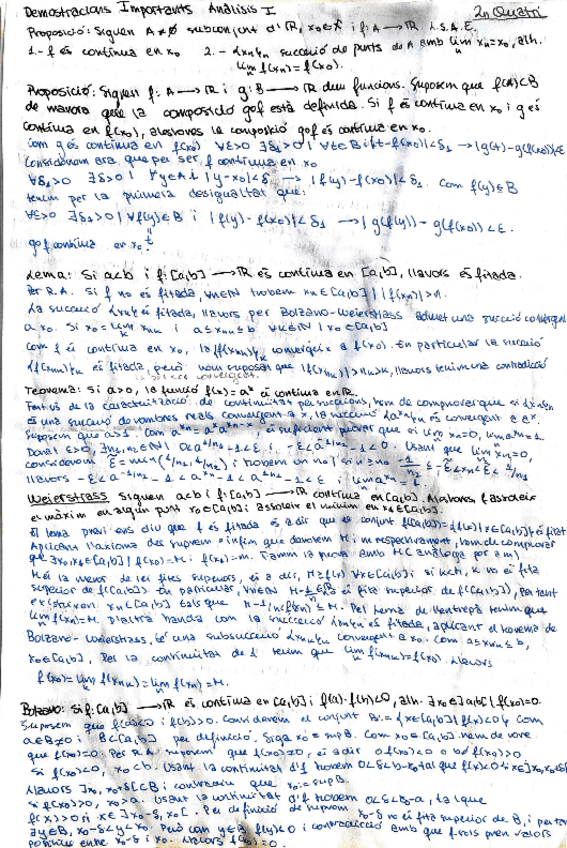 Demostracions Importants Anàlisis I 2n Quatri
Proposició: Siguen A≠∅ subconjunt d'ℝ, x₀∈A i f: A→ℝ. L.S.A.E.
1.- f és contínua en x₀ 2.- {xn}n successió de punts de A amb lim xn=x₀, alh.
lim f(xn)=f(x₀).
Proposició: Siguen f: A→ℝ i g: B→ℝ dues funcions. Suposem que f(A)⊂B
de manera que la composició g∘f està definida. Si f és contínua en x₀ i g és
contínua en f(x₀), aleshores la composició g∘f és contínua en x₀.
Com g és contínua en f(x₀) ∀ε>0 ∃δ₁>0 | ∀t∈B i |t-f(x₀)|<δ₁ → |g(t)-g(f(x₀))|<ε
Considerem ara, que per ser f contínua en x₀
∀δ₁>0 ∃δ>0 | ∀y∈A i |y-x₀|<δ → |f(y)-f(x₀)|<δ₁. Com f(y)∈B
tenim per la primera desigualtat que:
∀ε>0 ∃δ₁>0 | ∀f(y)∈B i |f(y)-f(x₀)|<δ₁ → |g(f(y))-g(f(x₀))|<ε.
g∘f contínua en x₀.
Lema: Si a<b i f: [a,b]→ℝ és contínua en [a,b], llavors és fitada.
Per R.A. Si f no és fitada, ∀n∈ℕ trobem xn∈[a,b] | |f(xn)|>n.
La successió {xn}n és fitada, llavors per Bolzano-Weierstrass admet una succesió convergent
a x₀. Si x₀=lim xnk i a≤xnk≤b ∀k∈ℕ | x₀∈[a,b]
Com f és contínua en x₀, la {f(xnk)}k convergeix a f(x₀). En particular la successió
{f(xnk)}k és fitada, però vam suposar que |f(xnk)|>nk≥k, llavors tenim una contradicció
Teorema: Si a>0, la funció f(x)=aˣ és contínua en ℝ.
Fent ús de la caracterització de continuïtat per successions, hem de comprovar que si {xn}n
és una successió de nombres reals convergent a x, la successió {a^xn}n és convergent a aˣ.
Suposem que a≥1. Com a^xn = aˣ a^(xn-x), és suficient provar que si lim xn=0, lim a^xn=1.
Weierstrass Siguen a<b i f: [a,b]→ℝ contínua en [a,b]. Aleshores, f assoleix
el màxim en algun punt x₀∈[a,b] i assoleix el mínim en x₁∈[a,b].
El lema previ ens diu que f és fitada és a dir que el conjunt f([a,b])={f(x)|x∈[a,b]} és fitat
Aplicant l'axioma des suprem e ínfim que denotem M i m respectivament, hem de comprovar
que ∃x₀,x₁∈[a,b] | f(x₀)=M i f(x₁)=m. Farem la prova amb M (anàloga per a m)
M és la menor de les fites superiors, és a dir, M≥f(x) ∀x∈[a,b] i si K<M, K no és fita
superior de f([a,b]). En particular, ∀n∈ℕ M-1/n no és fita superior de f([a,b]), per tant
existeixen xn∈[a,b] tals que M-1/n<f(xn)≤M. Pel lema de l'entrepà tenim que
lim f(xn)=M. D'altra banda com la successió {xn}n és fitada, aplicant el teorema de
Bolzano-Weierstrass, té una subsuccesió {xnk}k convergent a x₀. Com a≤xnk≤b,
x₀∈[a,b]. Per la continuïtat de f tenim que lim f(xnk)=f(x₀). Llavors
f(x₀)=lim f(xnk)=lim f(xn)=M.
Bolzano: Si f: [a,b]→ℝ és contínua en [a,b] i f(a)·f(b)<0, alh. ∃x₀∈]a,b[ | f(x₀)=0.
Suposem que f(a)<0 i f(b)>0. Considerem el conjunt B:={x∈[a,b] | f(x)<0}, com
a∈B≠∅ i B⊂[a,b] per definició, siga x₀=supB. Com x₀∈[a,b], hem de vore
que f(x₀)=0. Per R.A. suposem que f(x₀)≠0, és a dir o f(x₀)<0 o bé f(x₀)>0
Si f(x₀)<0, x₀<b. Usant la continuïtat d'f trobem 0<δ<b-x₀ tal que f(x)<0 si x∈]x₀,x₀+δ[
Llavors ]x₀,x₀+δ[⊂B i contradiu que x₀=supB.
Si f(x₀)>0, x₀>a. Usant la continuïtat d'f trobem 0<δ<x₀-a, tal que
f(x)>0 si x∈]x₀-δ,x₀[. Per definició de suprem x₀-δ no és fita superior de B, i per tant
∃y∈B, x₀-δ<y<x₀. Però com y∈B f(y)<0 i contradicció amb que f sols pren valors
positius entre x₀-δ i x₀. Llavors f(x₀)=0.